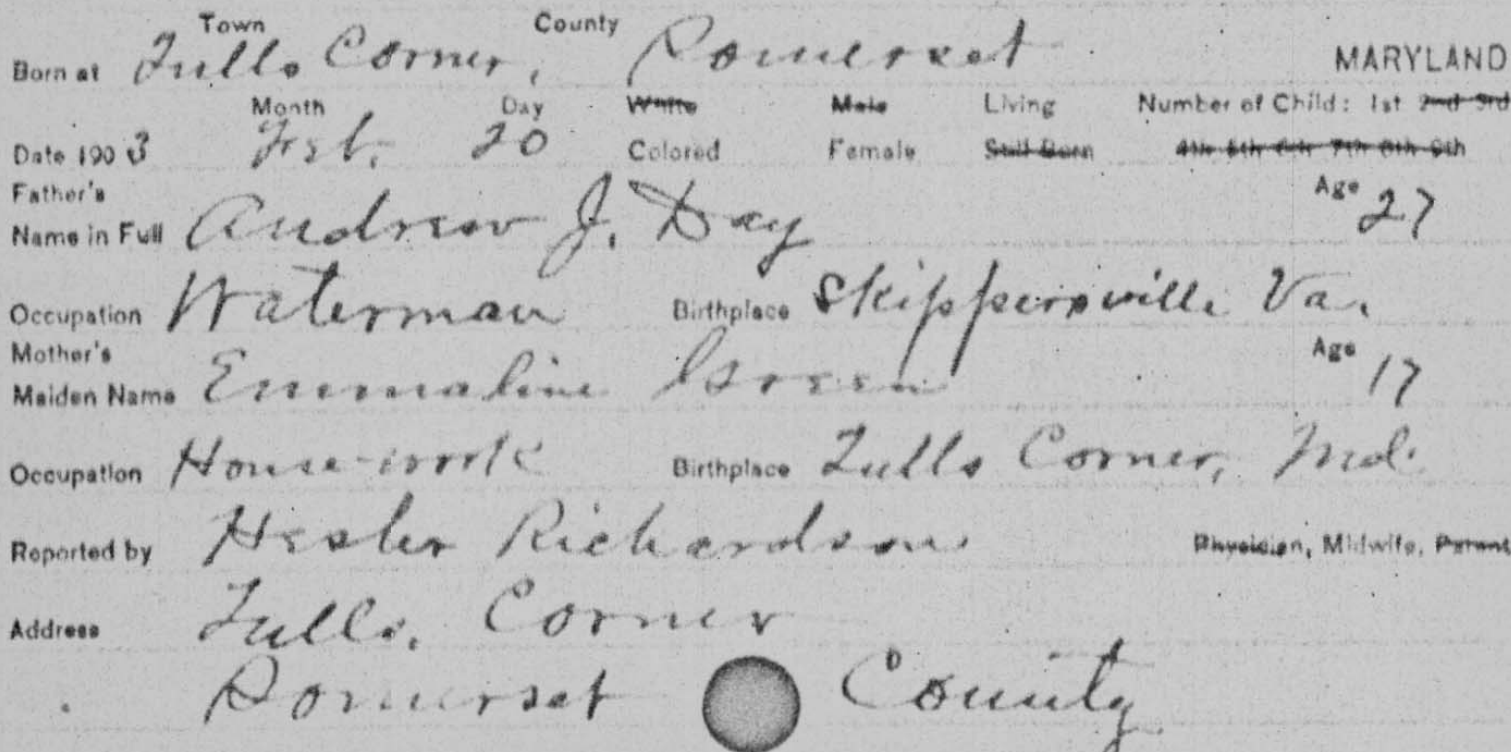 Town County
Born at Tulls Corner, Somerset MARYLAND
Month Day White Male Living Number of Child: 1st 2nd 3rd
Date 1903 Feb. 20 Colored Female Still Born 4th 5th 6th 7th 8th 9th
Father's Age 27
Name in Full Andrew J. Day
Occupation Waterman Birthplace Skippersville Va.
Mother's Age 17
Maiden Name Emmaline Green
Occupation House-work Birthplace Tulls Corner, Md.
Reported by Hester Richardson Physician, Midwife, Parent
Address Tulls. Corner
Somerset County